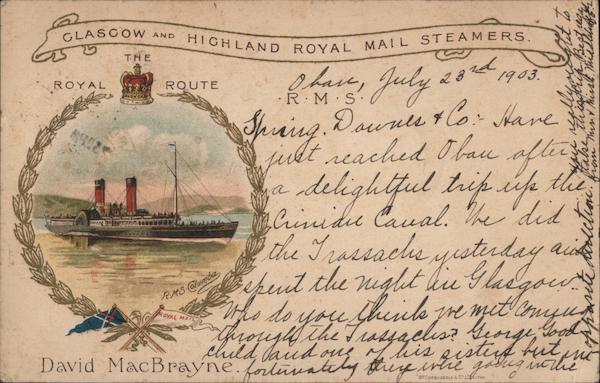 GLASGOW AND HIGHLAND ROYAL MAIL STEAMERS.
THE
ROYAL ROUTE
R.M.S.
R.M.S. Columba
ROYAL MAIL
David MacBrayne.
Oban, July 23rd 1903.
Spring. Downes & Co:- Have
just reached Oban after
a delightful trip up the
Crinian Canal. We did
the Trossachs yesterday and
spent the night in Glasgow.
Who do you think we met coming
through the Trossachs? George Good
child and one of his sisters but un
fortunately they were going in the
opposite direction.